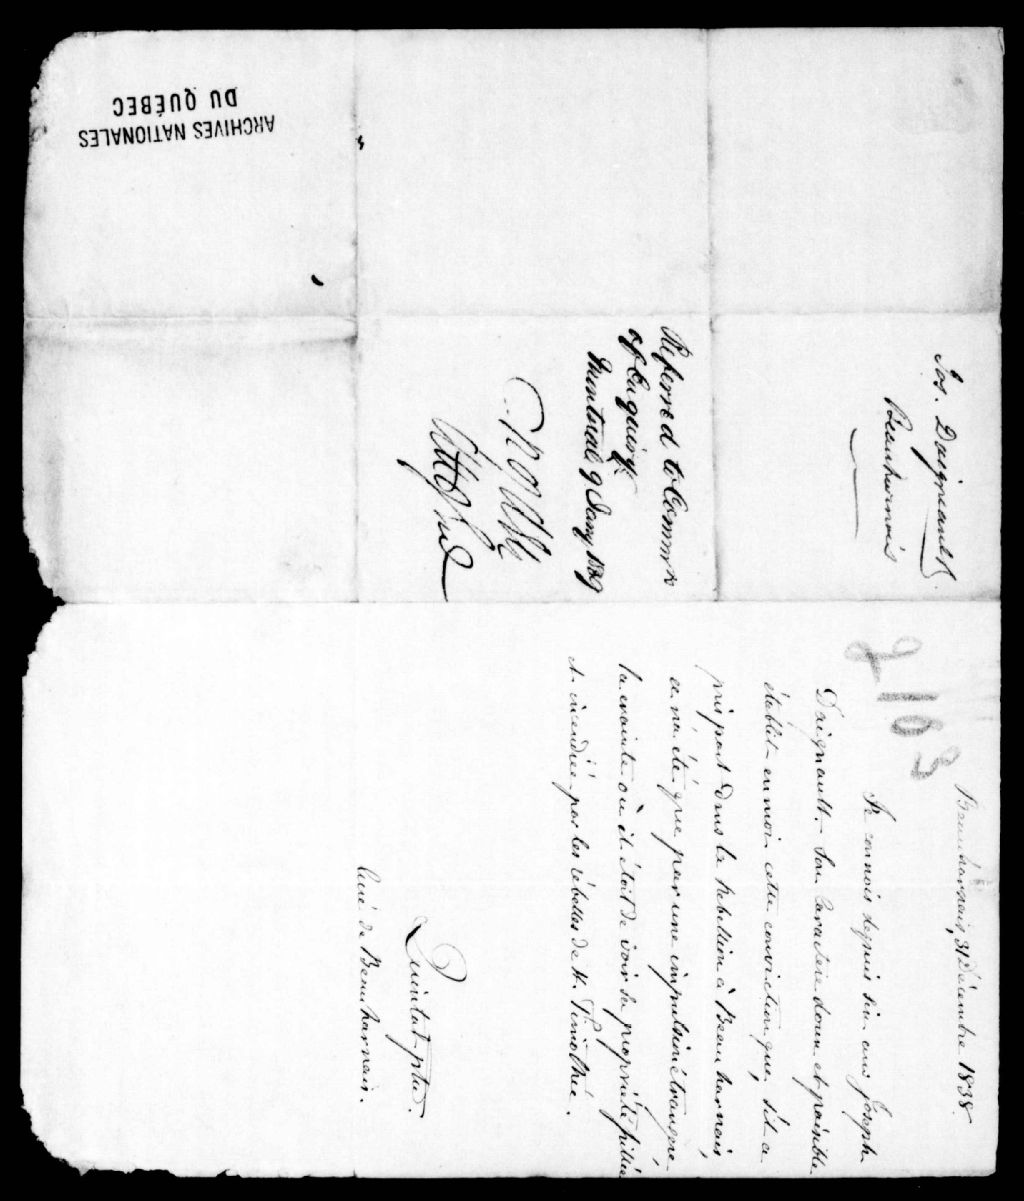 ARCHIVES NATIONALES
DU QUÉBEC
Jos. Daigneault
Beauharnois
Referred to Commrs
of Enquiry
Montreal 9 Jany 1839
2163
Beauharnais, 31 Décembre 1838.
Je connais depuis six ans Joseph
Daignault. Son Caractere doux et paisible
établit en moi cette conviction que, s'il a
pris part dans la Rebellion à Beauharnais,
ce n'a été que par une impulsion étrangère
la crainte où il était de voir sa propriété pillée
et incendiée par les rebelles de St. Timothée.
Quintal ptre.
Curé de Beauharnais.